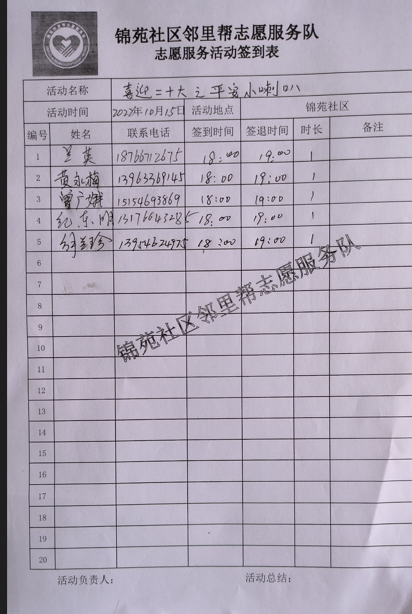 锦苑社区邻里帮志愿服务队
志愿服务活动签到表
活动名称 喜迎二十大之平安小喇叭
活动时间 2022年10月15日 活动地点 锦苑社区
编号 姓名 联系电话 签到时间 签退时间 时长 备注
1 兰英 18766712675 18:00 19:00 1
2 黄永梅 13963369145 18:00 19:00 1
3 曾广娥 15154693869 18:00 19:00 1
4 纪东明 13176643285 18:00 19:00 1
5 13954624975 18:00 19:00 1
6
7
8
9
10
11
12
13
14
15
16
17
18
19
20
锦苑社区邻里帮志愿服务队
活动负责人： 活动总结：